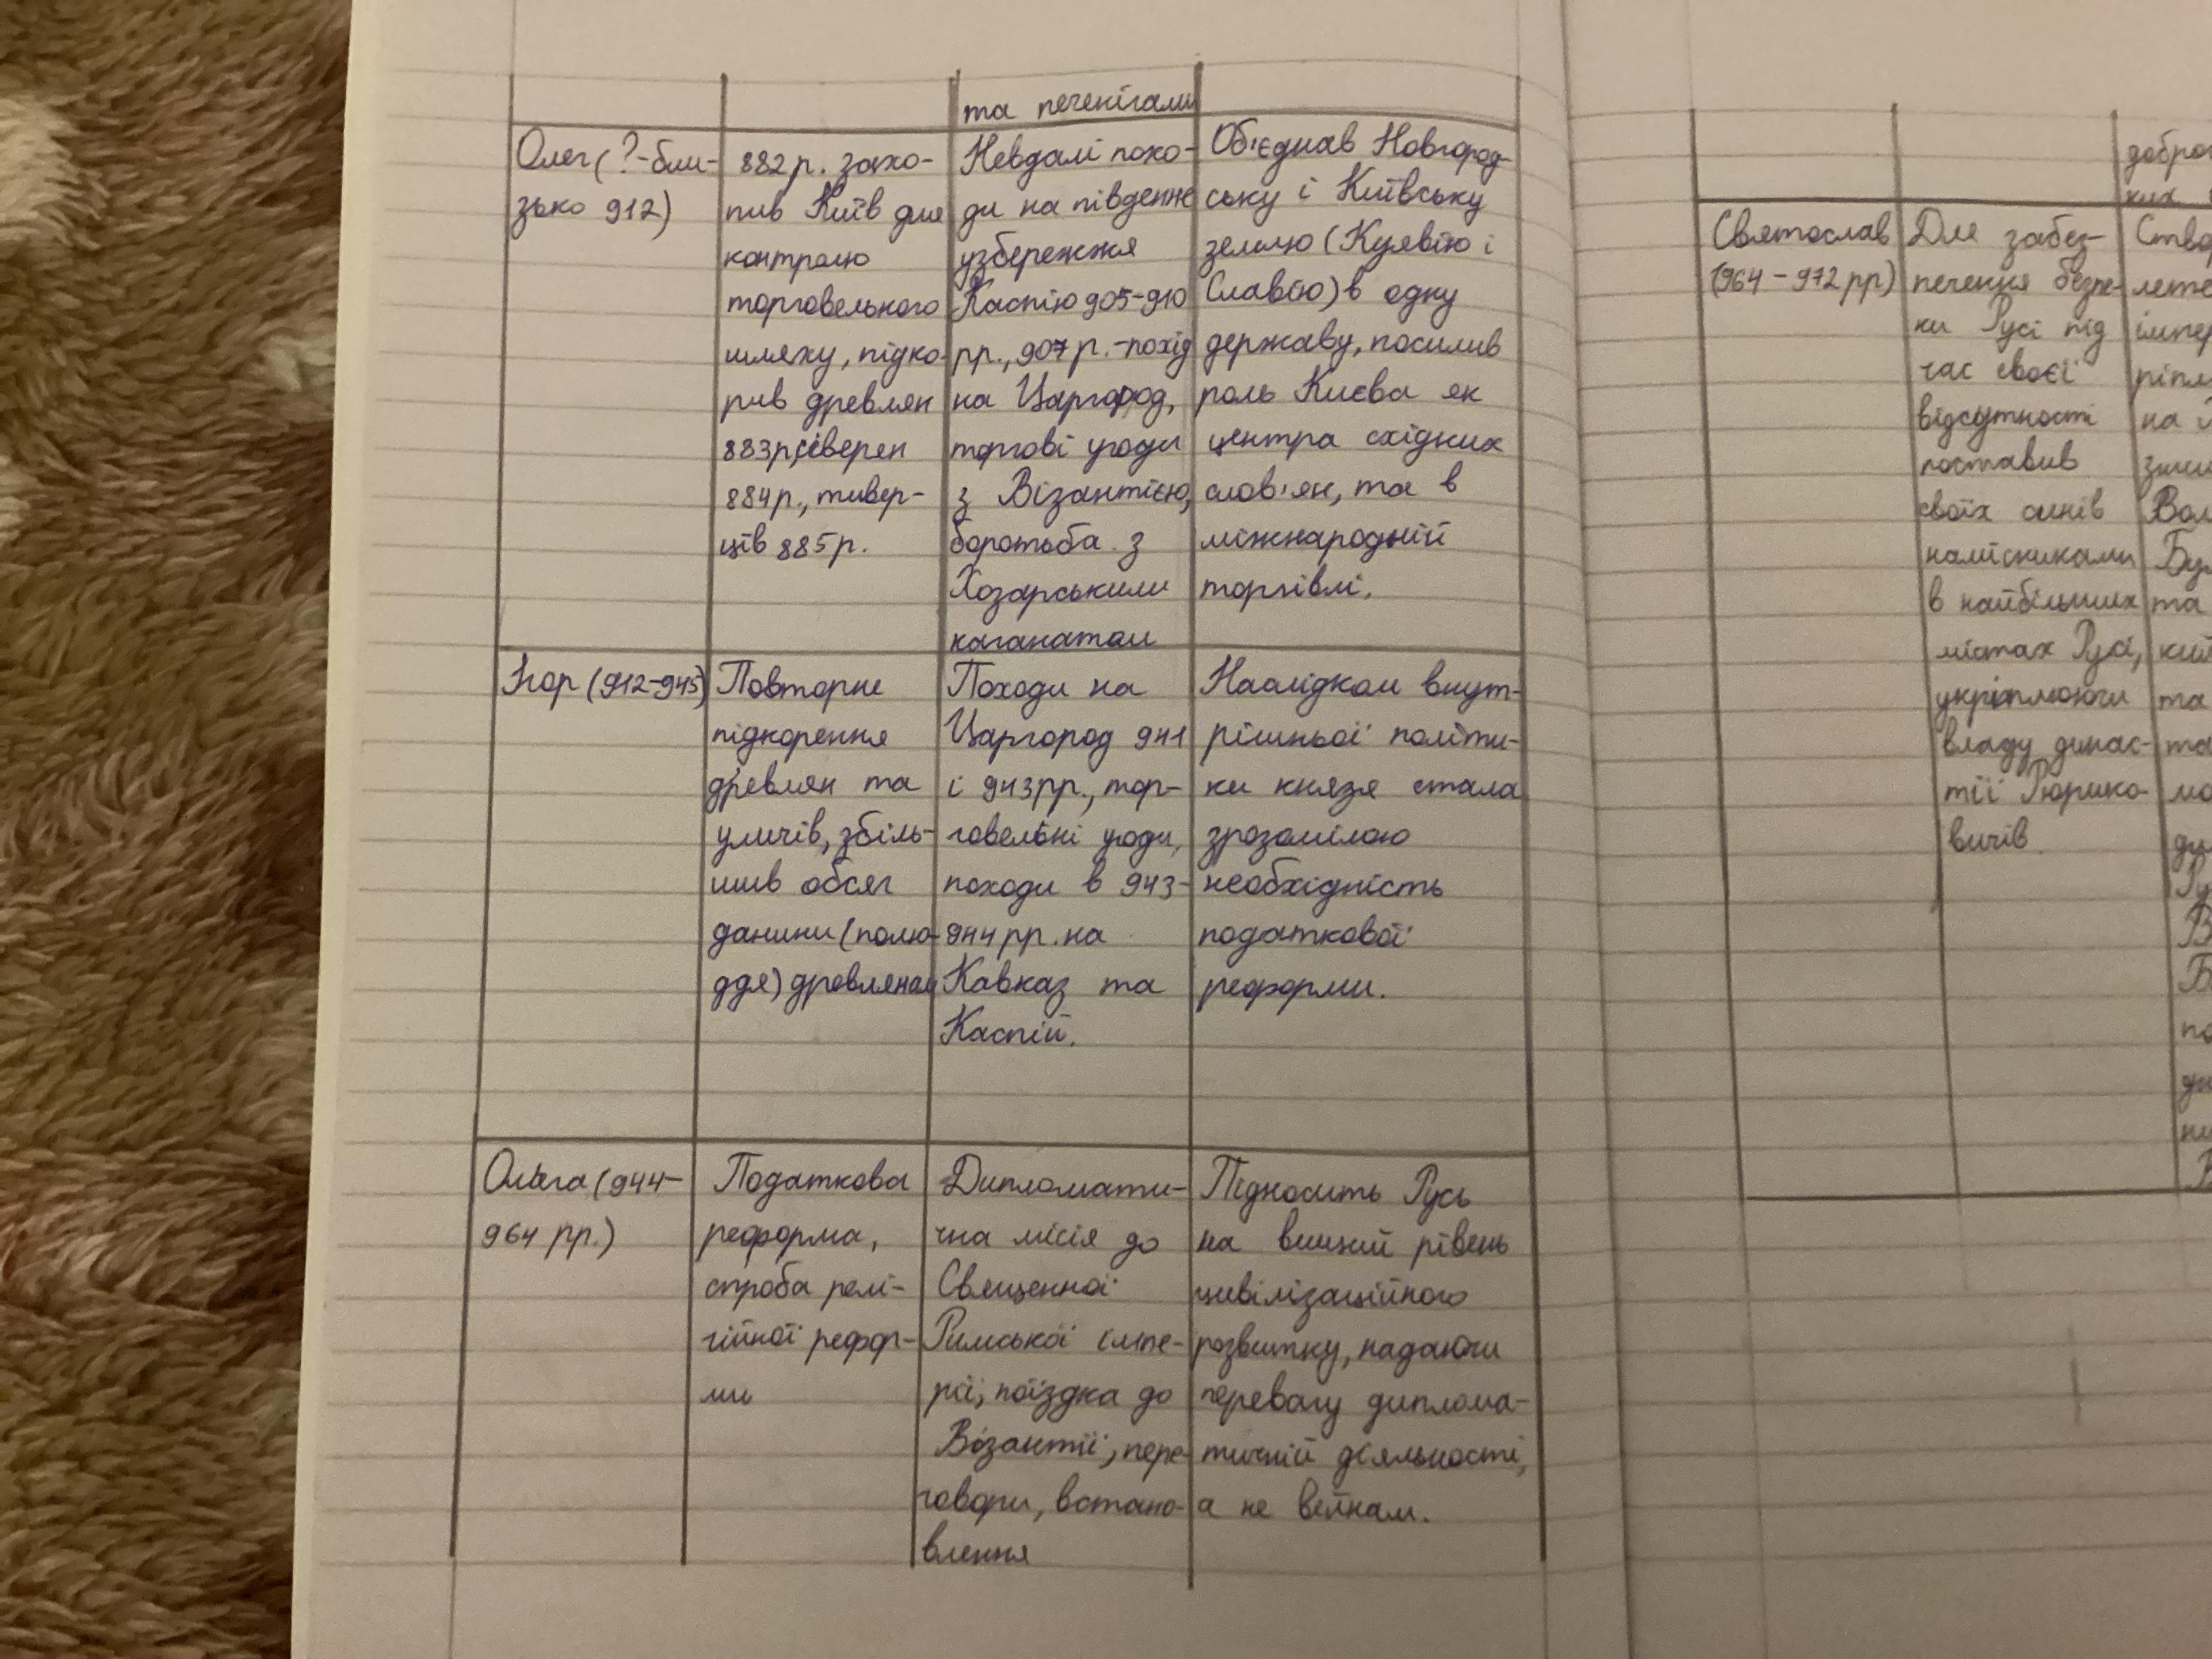 та печенігами
Олег (?-бли-
зько 912)
882 р. захо-
пив Київ для
контролю
торговельного
шляху, підко-
рив древлян
883р, сіверян
884р., тивер-
ців 885р.
Невдалі похо-
ди на південне
узбережжя
Каспію 905-910
рр., 907 р. - похід
на Царгород,
торгові угоди
з Візантією,
боротьба з
Хозарським
каганатом
Об'єднав Новгород-
ську і Київську
землю (Куявію і
Славію) в одну
державу, посилив
роль Києва як
центра східних
слов'ян, та в
міжнародній
торгівлі.
Ігор (912-945)
Повторне
підкорення
древлян та
уличів, збіль-
шив обсяг
данини (полю-
ддя) древлянам
Походи на
Царгород 941
і 943рр., тор-
говельні угоди,
походи в 943-
944 рр. на
Кавказ та
Каспій.
Наслідком внут-
рішньої політи-
ки князя стала
зрозумілою
необхідність
податкової
реформи.
Ольга (944-
964 рр.)
Податкова
реформа,
спроба релі-
гійної рефор-
ми
Дипломати-
чна місія до
Священної
Римської імпе-
рії, поїздка до
Візантії, пере-
говори, встано-
влення
Підносить Русь
на вищий рівень
цивілізаційного
розвитку, надаючи
перевагу диплома-
тичній діяльності,
а не війнам.
Святослав
(964 - 972 рр)
Для забез-
печення безпе-
ки Русі під
час своєї
відсутності
поставив
своїх синів
намісниками
в найбільших
містах Русі,
укріплюючи
владу динас-
тії Рюрико-
вичів.
доброс
ких
Ство
леже
імпер
ріпл
на
зни
Вол
Бу
та
ки
та
та
мо
ду
Ру
В
Б
по
ди
ни
В